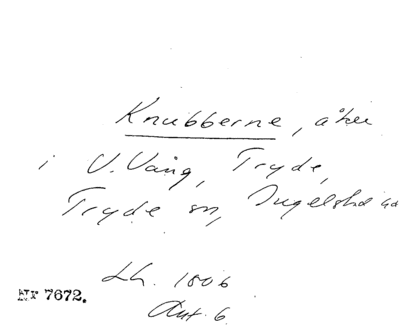 Knubberne, åker
i V. Vång, Tryde,
Tryde sn, Ingelstad hd
Lh. 1806
Akt. 6
Nr 7672.